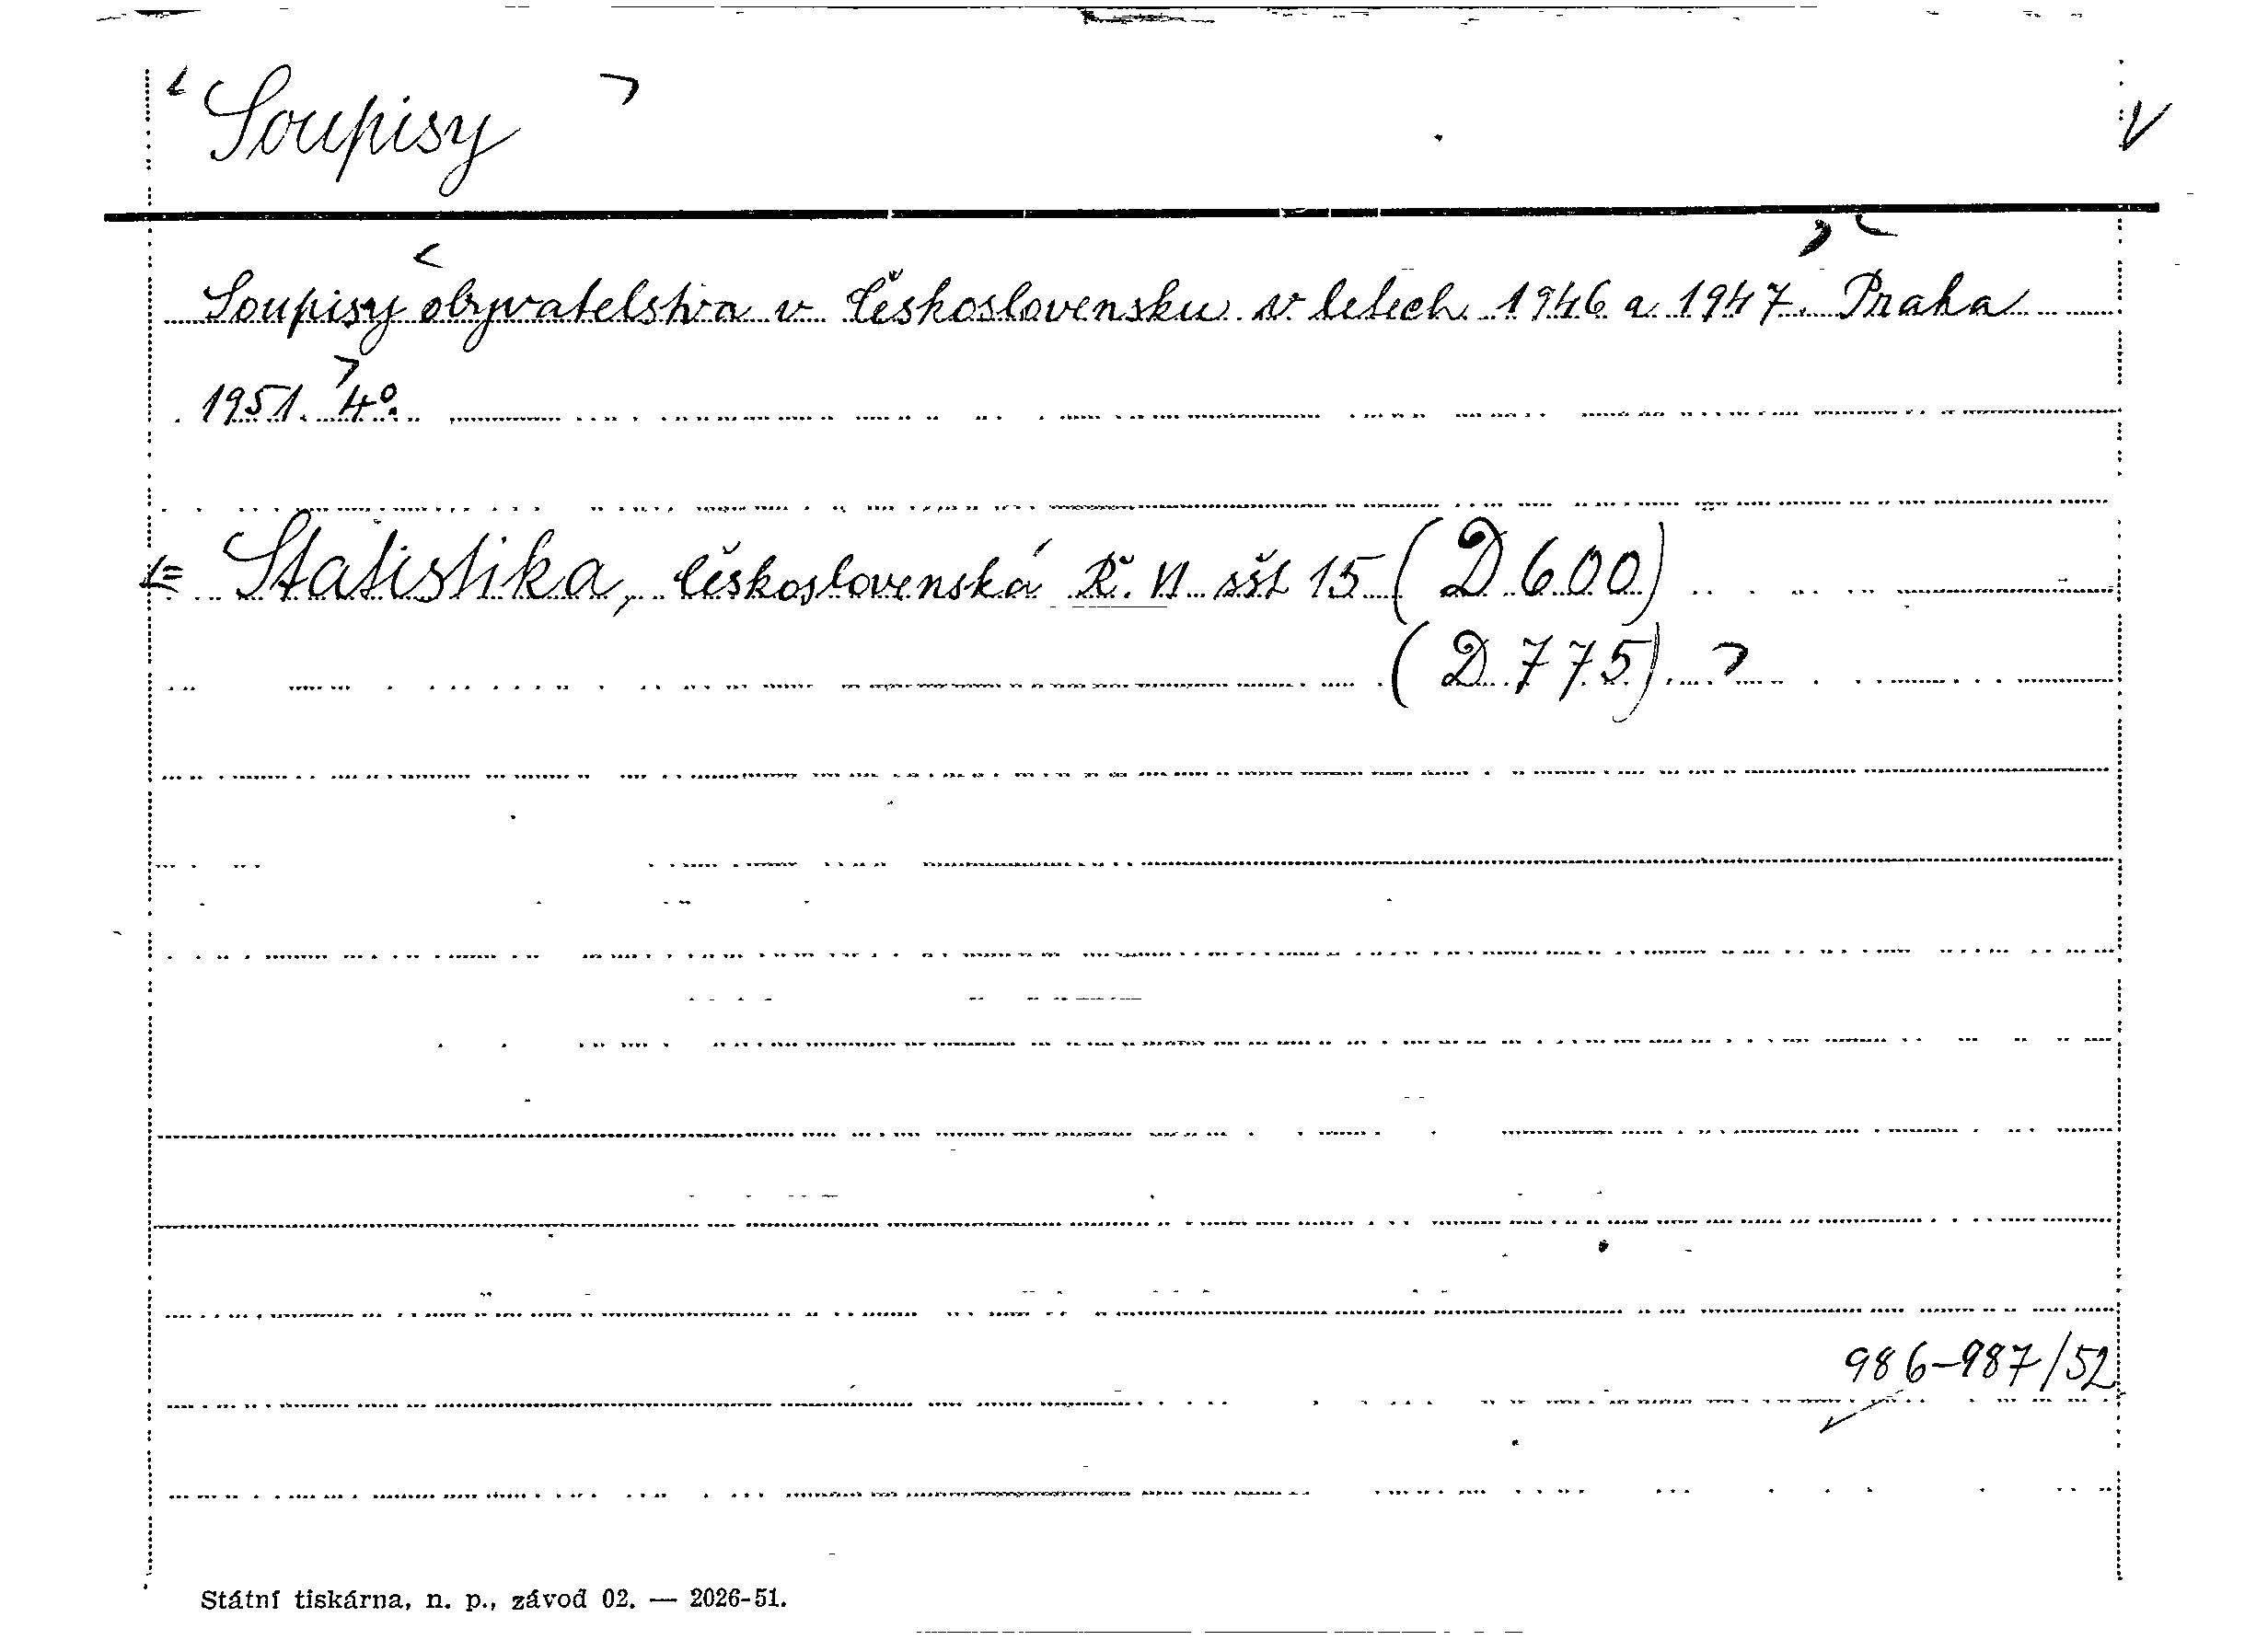 Soupisy
V
Soupisy obyvatelstva v Československu v letech 1946 a 1947. Praha
1951. 4°.
= Statistika, Československá Ř. VI sšt 15 (D 600)
(D 775)
986-987/52
Státní tiskárna, n. p., závod 02. — 2026-51.